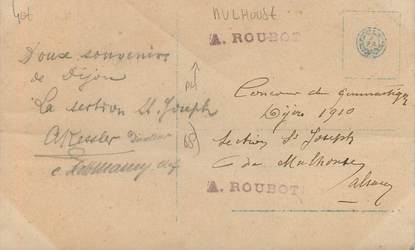 MULHOUSE
A. ROUBOT
Doux souvenirs
de Dijon
La section St Joseph
A Kessler
Concour de gymnastique
Dijon 1910
section St Joseph
de Mulhouse
Alsace
A. ROUBOT